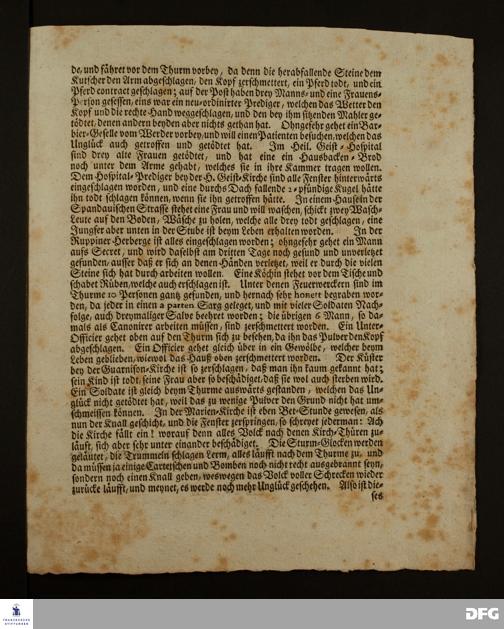 de, und fähret vor dem Thurm vorbey, da denn die herabfallende Steine dem
Kutscher den Arm abgeschlagen, den Kopf zerschmettert, ein Pferd todt, und ein
Pferd contract geschlagen; auf der Post haben drey Manns- und eine Frauens-
Person gesessen, eins war ein neu-ordinirter Prediger, welchen das Wetter den
Kopf und die rechte Hand weggeschlagen, und den bey ihm sitzenden Mahler ge-
tödtet, denen andern beyden aber nichts gethan hat. Ohngefehr gehet ein Bar-
bier-Geselle vom Werder vorbey, und will einen Patienten besuchen, welchen das
Unglück auch getroffen und getödtet hat. Im Heil. Geist-Hospital
sind drey alte Frauen getödtet, und hat eine ein Hausbacken-Brod
noch unter dem Arme gehabt, welches sie in ihre Kammer tragen wollen.
Dem Hospital-Prediger bey der H. Geist-Kirche sind alle Fenster hinterwärts
eingeschlagen worden, und eine durchs Dach fallende 2-pfündige Kugel hätte
ihn todt schlagen können, wenn sie ihn getroffen hätte. In einem Hauseln der
Spandauischen Strasse stehet eine Frau und will waschen, schickt zwey Wasch-
Leute auf den Boden, Wäsche zu holen, welche alle drey todt geschlagen, eine
Jungfer aber unten in der Stube ist beym Leben erhalten worden. In der
Ruppiner-Herberge ist alles eingeschlagen worden; ohngefehr gehet ein Mann
aufs Secret, und wird daselbst am dritten Tage noch gesund und unverletzet
gefunden, ausser daß er sich an denen Händen verletzet, weil er durch die vielen
Steine sich hat durch arbeiten wollen. Eine Köchin stehet vor dem Tische und
schabet Rüben, welche auch erschlagen ist. Unter denen Feuerwerckern sind im
Thurme 10 Personen gantz gefunden, und hernach sehr honett begraben wor-
den, da jeder in einen aparten Sarg geleget, und mit vieler Soldaten Nach-
folge, auch dreymaliger Salve beehret worden; die übrigen 6 Mann, so da-
mals als Canonirer arbeiten müssen, sind zerschmettert worden. Ein Unter-
Officier gehet oben auf den Thurm sich zu besehen, da ihn das Pulver den Kopf
abgeschlagen. Ein Officier gehet gleich über in ein Gewölbe, welcher beym
Leben geblieben, wiewol das Hauß oben zerschmettert worden. Der Küster
bey der Guarnison-Kirche ist so zerschlagen, daß man ihn kaum gekannt hat;
sein Kind ist todt, seine Frau aber so beschädiget, daß sie wol auch sterben wird.
Ein Soldate ist gleich beym Thurme auswärts gestanden, welchen das Un-
glück nicht getödtet hat, weil das zu wenige Pulver den Grund nicht hat um-
schmeissen können. In der Marien-Kirche ist eben Bet-Stunde gewesen, als
nun der Knall geschicht, und die Fenster zerspringen, so schreyet jederman: Ach
die Kirche fällt ein! worauf denn alles Volck nach denen Kirch-Thüren zu-
läuft, sich aber sehr unter einander beschädiget. Die Sturm-Glocken werden
geläutet, die Trummeln schlagen Lerm, alles läufft nach dem Thurme zu, und
da müssen ja einige Cartetschen und Bomben noch nicht recht ausgebrannt seyn,
sondern noch einen Knall geben, weswegen das Volck voller Schrecken wieder
zurücke läufft, und meynet, es werde noch mehr Unglück geschehen. Also ist die-
ses
FRANCKESCHE
STIFTUNGEN
DFG